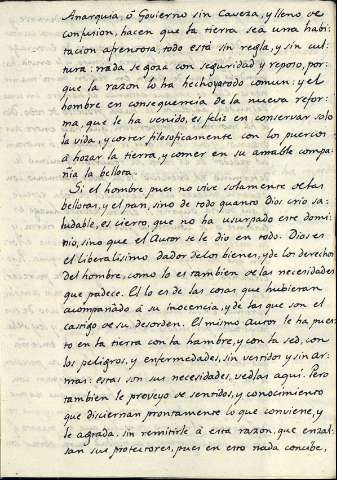 Anarquia, ó Govierno sin Caveza, y lleno de
confusion, hacen que la tierra sea una habi-
tacion afrentosa, todo está sin regla, y sin cul-
tura: nada se goza con seguridad y reposo, por-
que la razon lo ha hecho yá todo comun: y el
hombre en consequencia de la nueva refor-
ma, que le ha venido, es feliz en conservar solo
la vida, y correr filosoficamente con los puercos
á hozar la tierra, y comer en su amable compa-
ñia la bellota.
Si el hombre pues no vive solamente de las
bellotas, y el pan, sino de todo quanto Dios crió sa-
ludable, es cierto, que no ha usurpado este domi-
nio, sino que el Autor se le dio en todo. Dios es
el liberalisimo dador de los bienes, y de los derechos
del hombre, como lo es tambien de las necesidades
que padece. El lo es de las cosas que hubieran
acompañado á su inocencia, y de las que son el
castigo de su desorden. El mismo Autor le ha pues-
to en la tierra con la hambre, y con la sed, con
los peligros, y enfermedades, sin vestidos y sin ar-
mas: estas son sus necesidades, vedlas aqui. Pero
tambien le proveyó de sentidos, y conocimiento
que disciernan prontamente lo que conviene, y
le agrada, sin remitirle á esta razon, que enzal-
san sus protectores, pues en esto nada concibe,